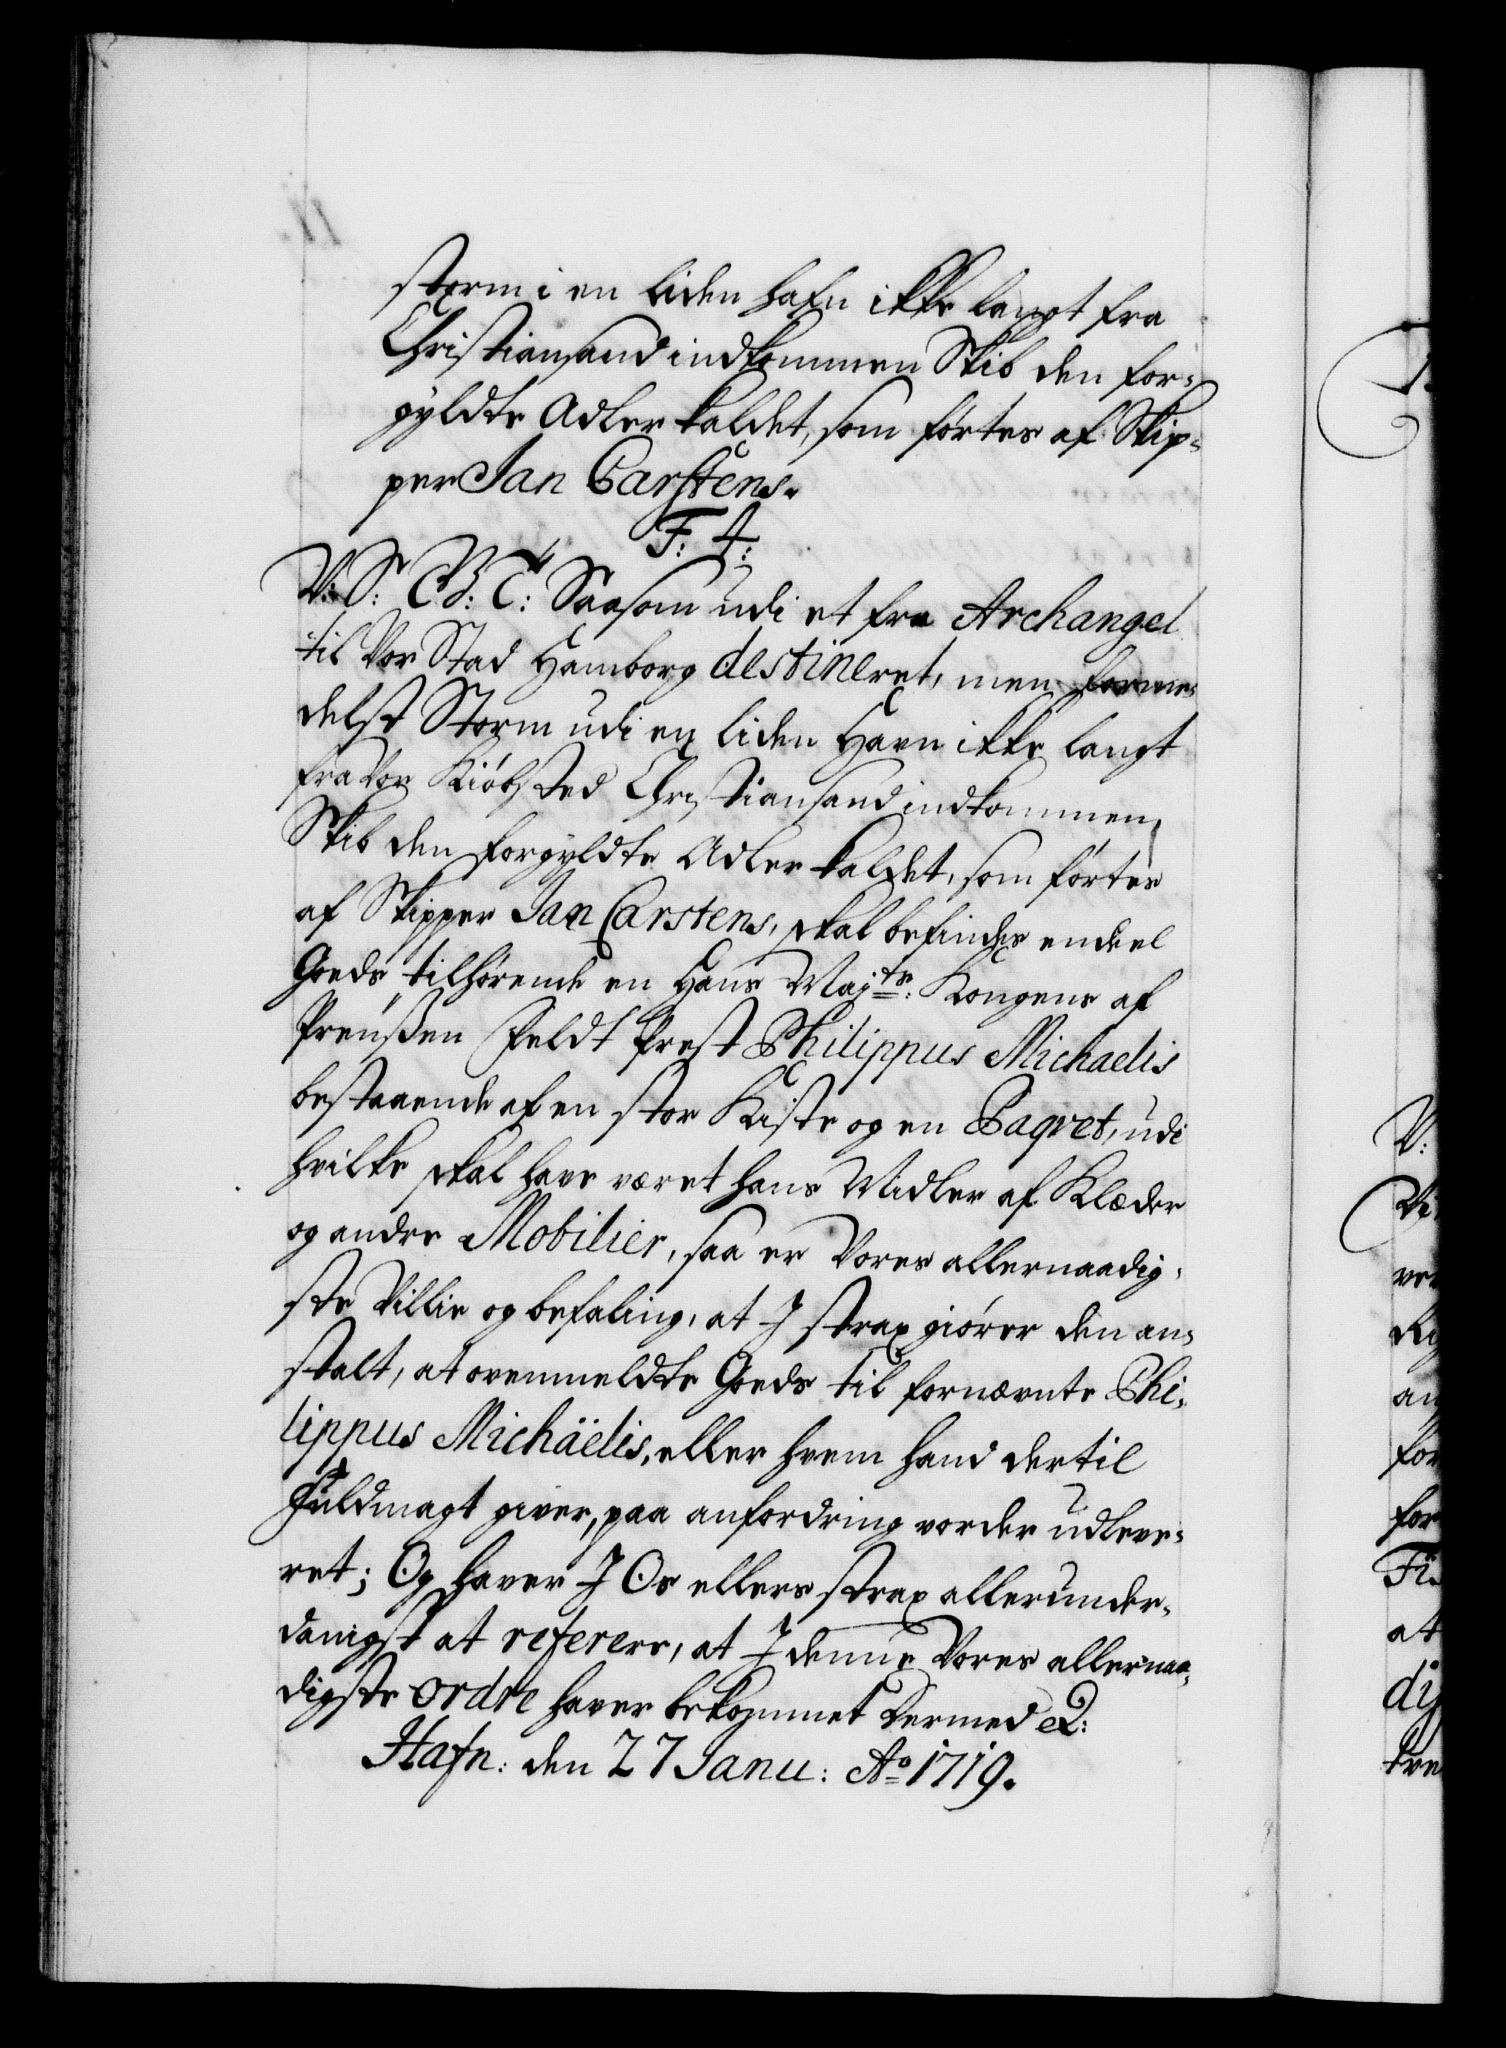 storm i en liden hafn ikke langt fra
Christiansand indkommen Skib den for-
gyldte Adler kaldet, som førtes af Skip-
per Jan Carstens.
F: 4:
V: S: G: B: T: Saasom udi et fra Archangel
til Vor Stad Hamborg destineret, men forme-
delst Storm udi en liden Havn ikke langt
fra Vor Kiøbsted Christiansand indkommen,
Skib den forgyldte Adler kaldet, som førtes
af Skipper Jan Carstens, skal befindes endeel
Goeds tilhørende en Hans Majts: Kongens af
Preussen Feldt Prest Philippus Michaelis
bestaaende af en stor Kiste og en Paqvet, udi
hvilke skal have været hans Midler af Klæder
og andre Mobilier, saa er Vores allernaadig-
ste Villie og befaling, at I strax giører den an-
stalt, at ovenmeldte Goeds til fornævnte Phi-
lippus Michäelis, eller hvem hand dertil
Fuldmagt giver, paa anfordring vorder udleve-
ret; Og haver I Os ellers strax allerunder-
danigst at referere, at I denne Vores allernaa-
digste ordre haver bekommet Dermed &:
Hafn: den 27 Janu: Ao 1719.